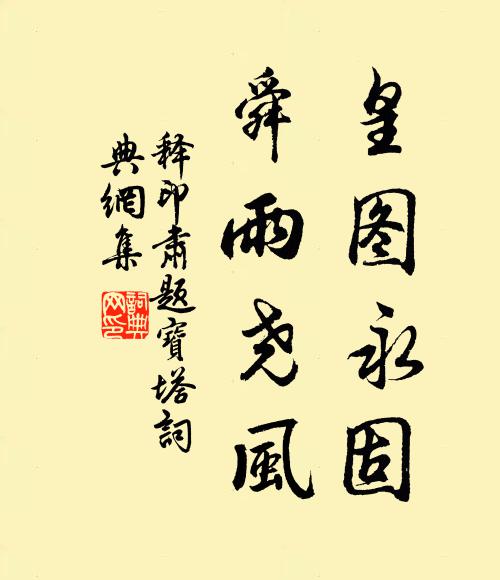 皇图永固
舜雨尧風
释印肃题寶塔詞
典網集
詞典網印